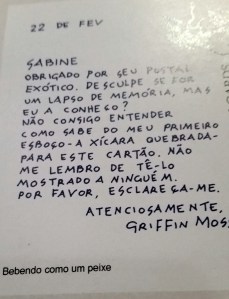 22 DE FEV
SABINE
OBRIGADO POR SEU POSTAL
EXÓTICO. DESCULPE SE FOR
UM LAPSO DE MEMÓRIA, MAS
EU A CONHEÇO?
NÃO CONSIGO ENTENDER
COMO SABE DO MEU PRIMEIRO
ESBOÇO-A XÍCARA QUEBRADA-
PARA ESTE CARTÃO. NÃO
ME LEMBRO DE TÊ-LO
MOSTRADO A NINGUÉM.
POR FAVOR, ESCLAREÇA-ME.
ATENCIOSAMENTE,
GRIFFIN MOS
Bebendo como um peixe